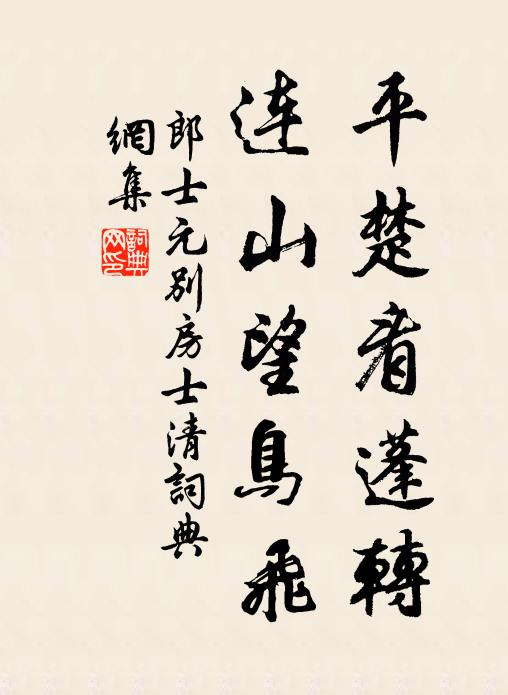 平楚看蓬轉
連山望鳥飛
郎士元別房士清詞典
網集
詞典
网印